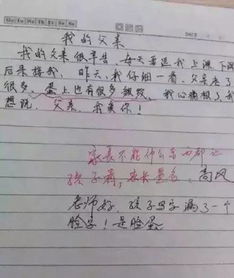 我的父亲
我的父亲很辛苦,每天送我上课,下课
后来接我,昨天,我仔细一看,父亲老了
很多,蛋上也有很多皱纹,我心痛极了我
想说,父亲,我爱你!
家长不能什么都让
孩子看,家长签名,高风
老师好,孩子写字漏了一个
脸字!是脸蛋